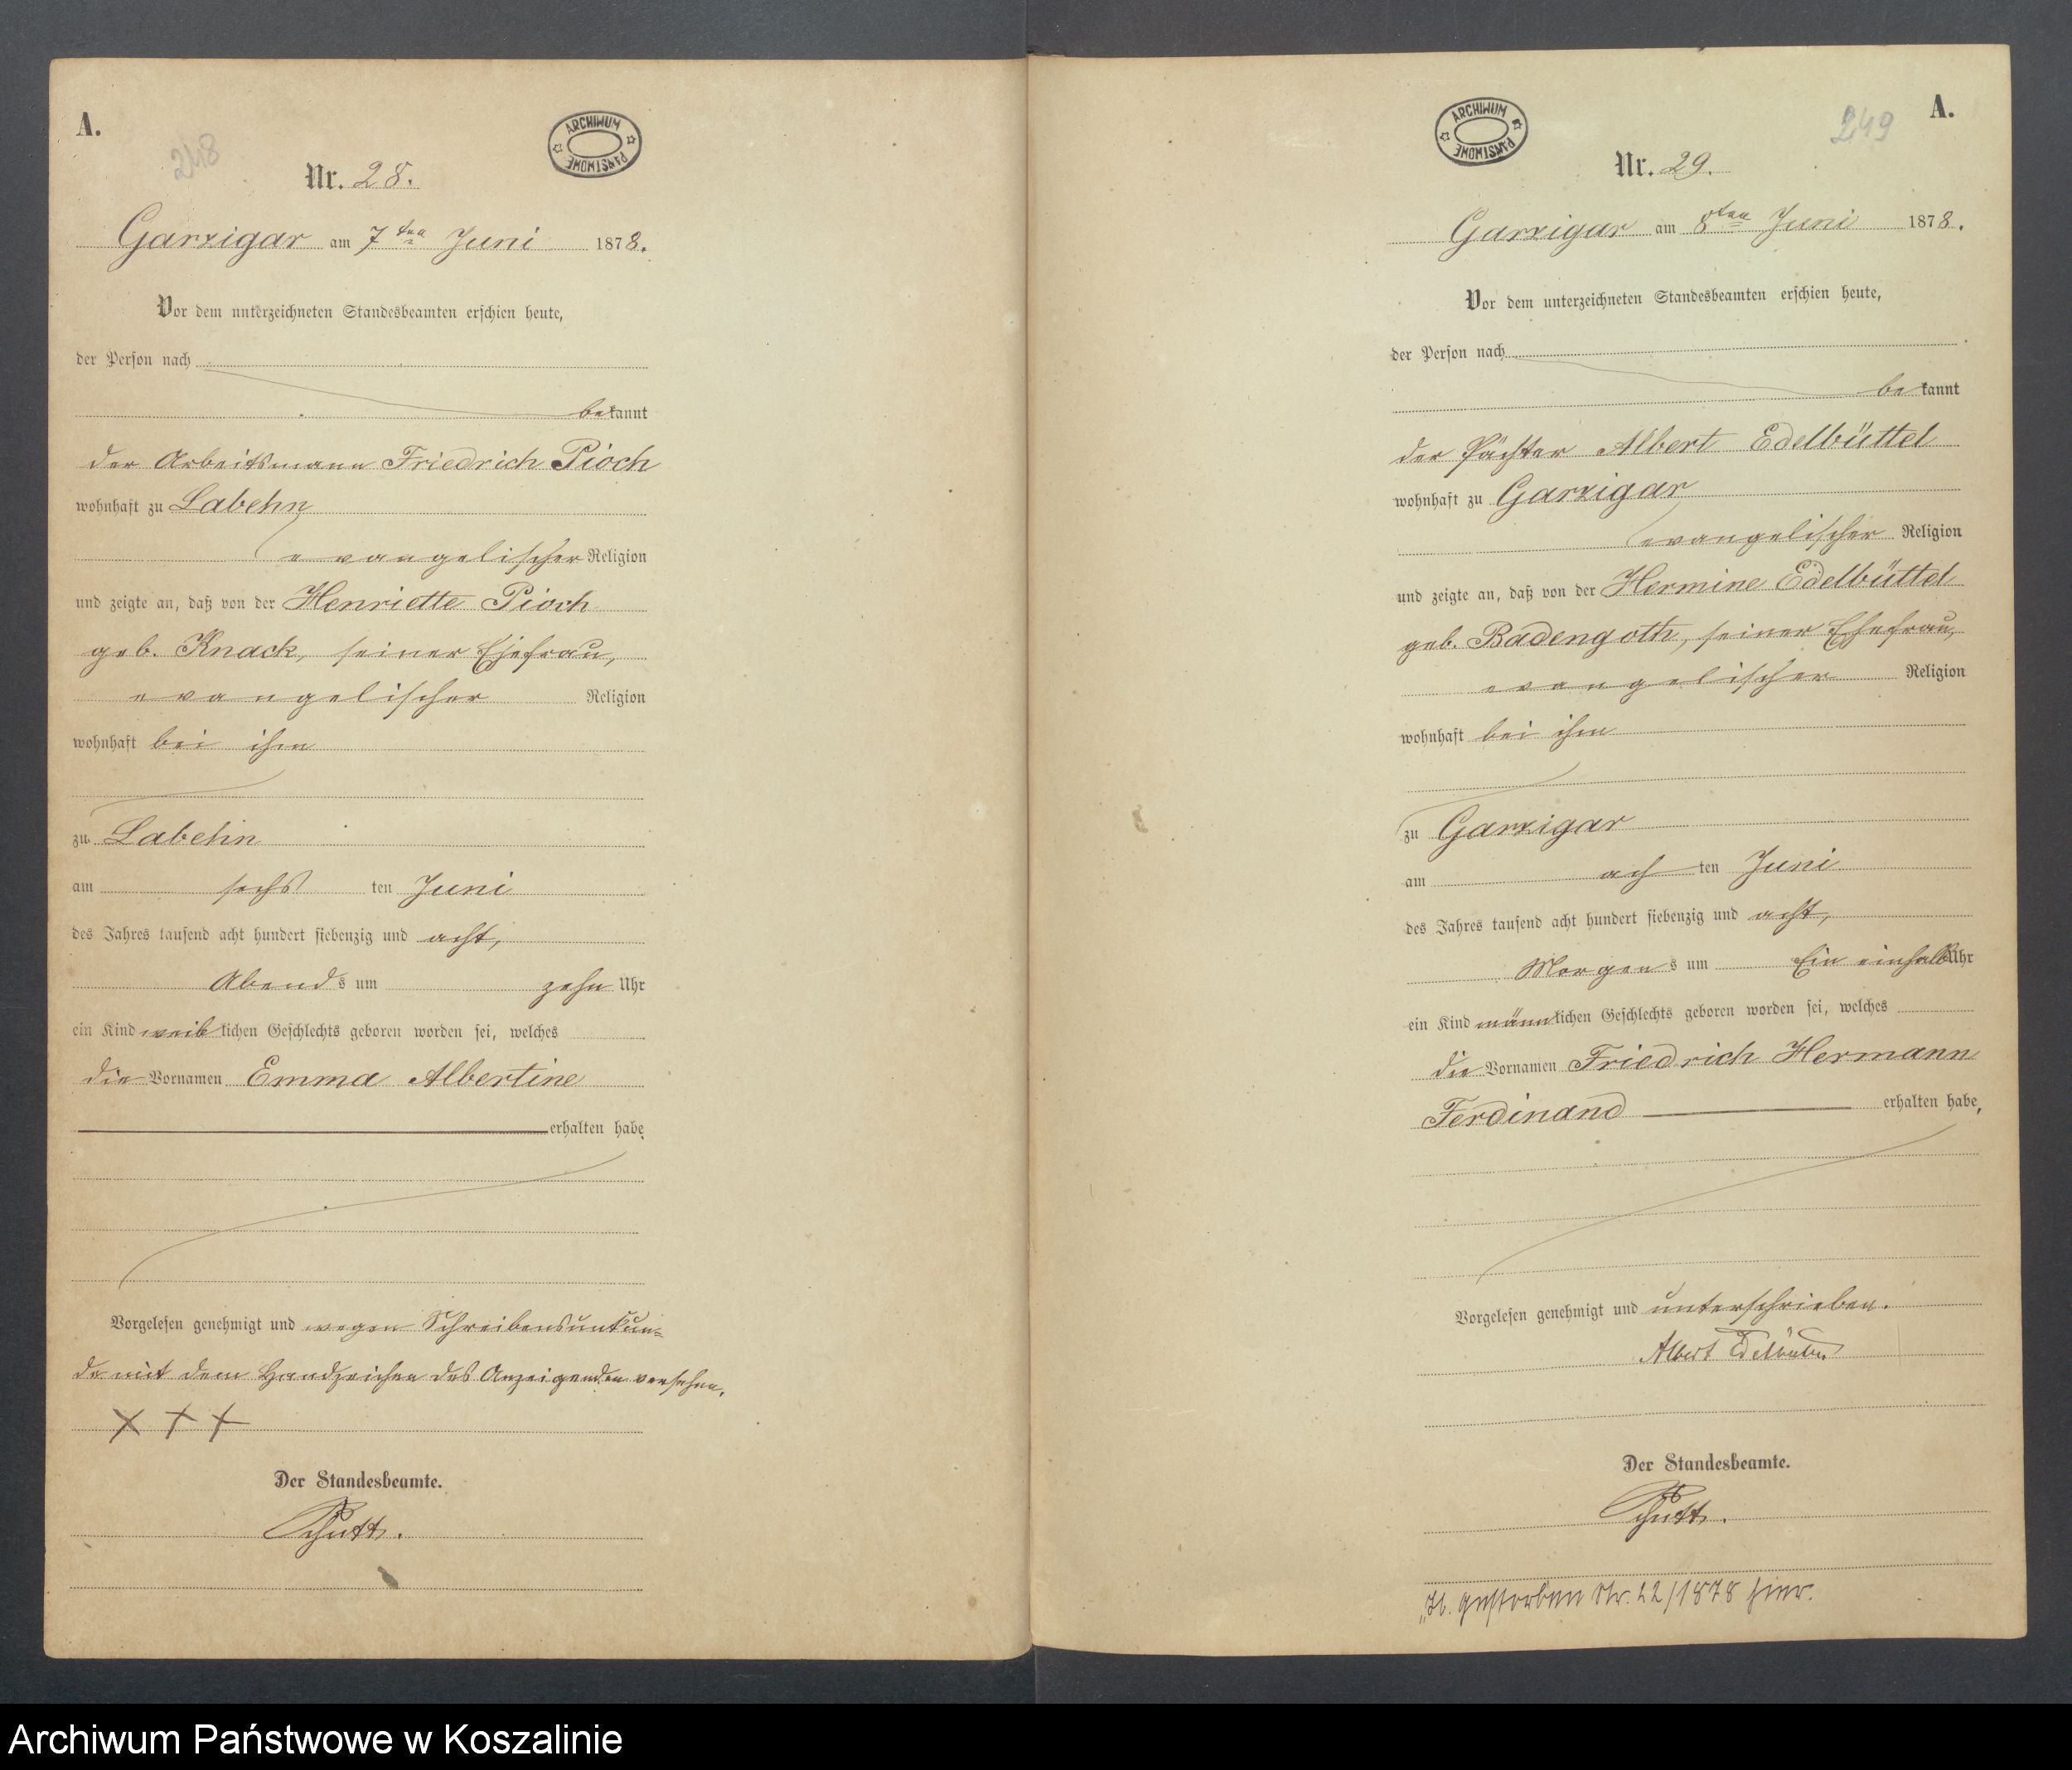 A.
248
ARCHIWUM PAŃSTWOWE
Nr. 28.
Garzigar am 7ten Juni 1878.
Vor dem unterzeichneten Standesbeamten erschien heute,
der Person nach
bekannt
der Arbeitsmann Friedrich Pioch
wohnhaft zu Labehn
evangelischer Religion
und zeigte an, daß von der Henriette Pioch
geb. Knack, seiner Ehefrau,
evangelischer Religion
wohnhaft bei ihm
zu Labehn
am sechsten Juni
des Jahres tausend acht hundert siebenzig und acht,
Abends um zehn Uhr
ein Kind weiblichen Geschlechts geboren worden sei, welches
die Vornamen Emma Albertine
erhalten habe.
Vorgelesen genehmigt und wegen Schreibensunkun=
de mit dem Handzeichen des Anzeigenden versehen.
X + +
Der Standesbeamte.
Schutt.
A.
249
ARCHIWUM PAŃSTWOWE
Nr. 29.
Garzigar am 8ten Juni 1878.
Vor dem unterzeichneten Standesbeamten erschien heute,
der Person nach
bekannt
der Pächter Albert Edelbüttel
wohnhaft zu Garzigar
evangelischer Religion
und zeigte an, daß von der Hermine Edelbüttel
geb. Badengoth, seiner Ehefrau,
evangelischer Religion
wohnhaft bei ihm
zu Garzigar
am achten Juni
des Jahres tausend acht hundert siebenzig und acht,
Morgens um Ein einhalb Uhr
ein Kind männlichen Geschlechts geboren worden sei, welches
die Vornamen Friedrich Hermann
Ferdinand erhalten habe.
Vorgelesen genehmigt und unterschrieben.
Albert Edelbüttel
Der Standesbeamte.
Schutt.
gestorben Nr. 22/1878 hier.
Archiwum Państwowe w Koszalinie